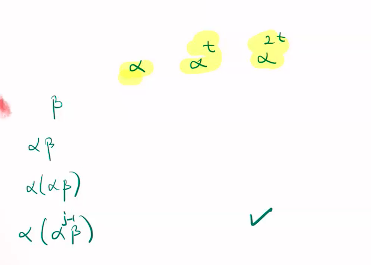 α α^t α^2t
β
αβ
α(αβ)
α(α^j-1 β) ✓